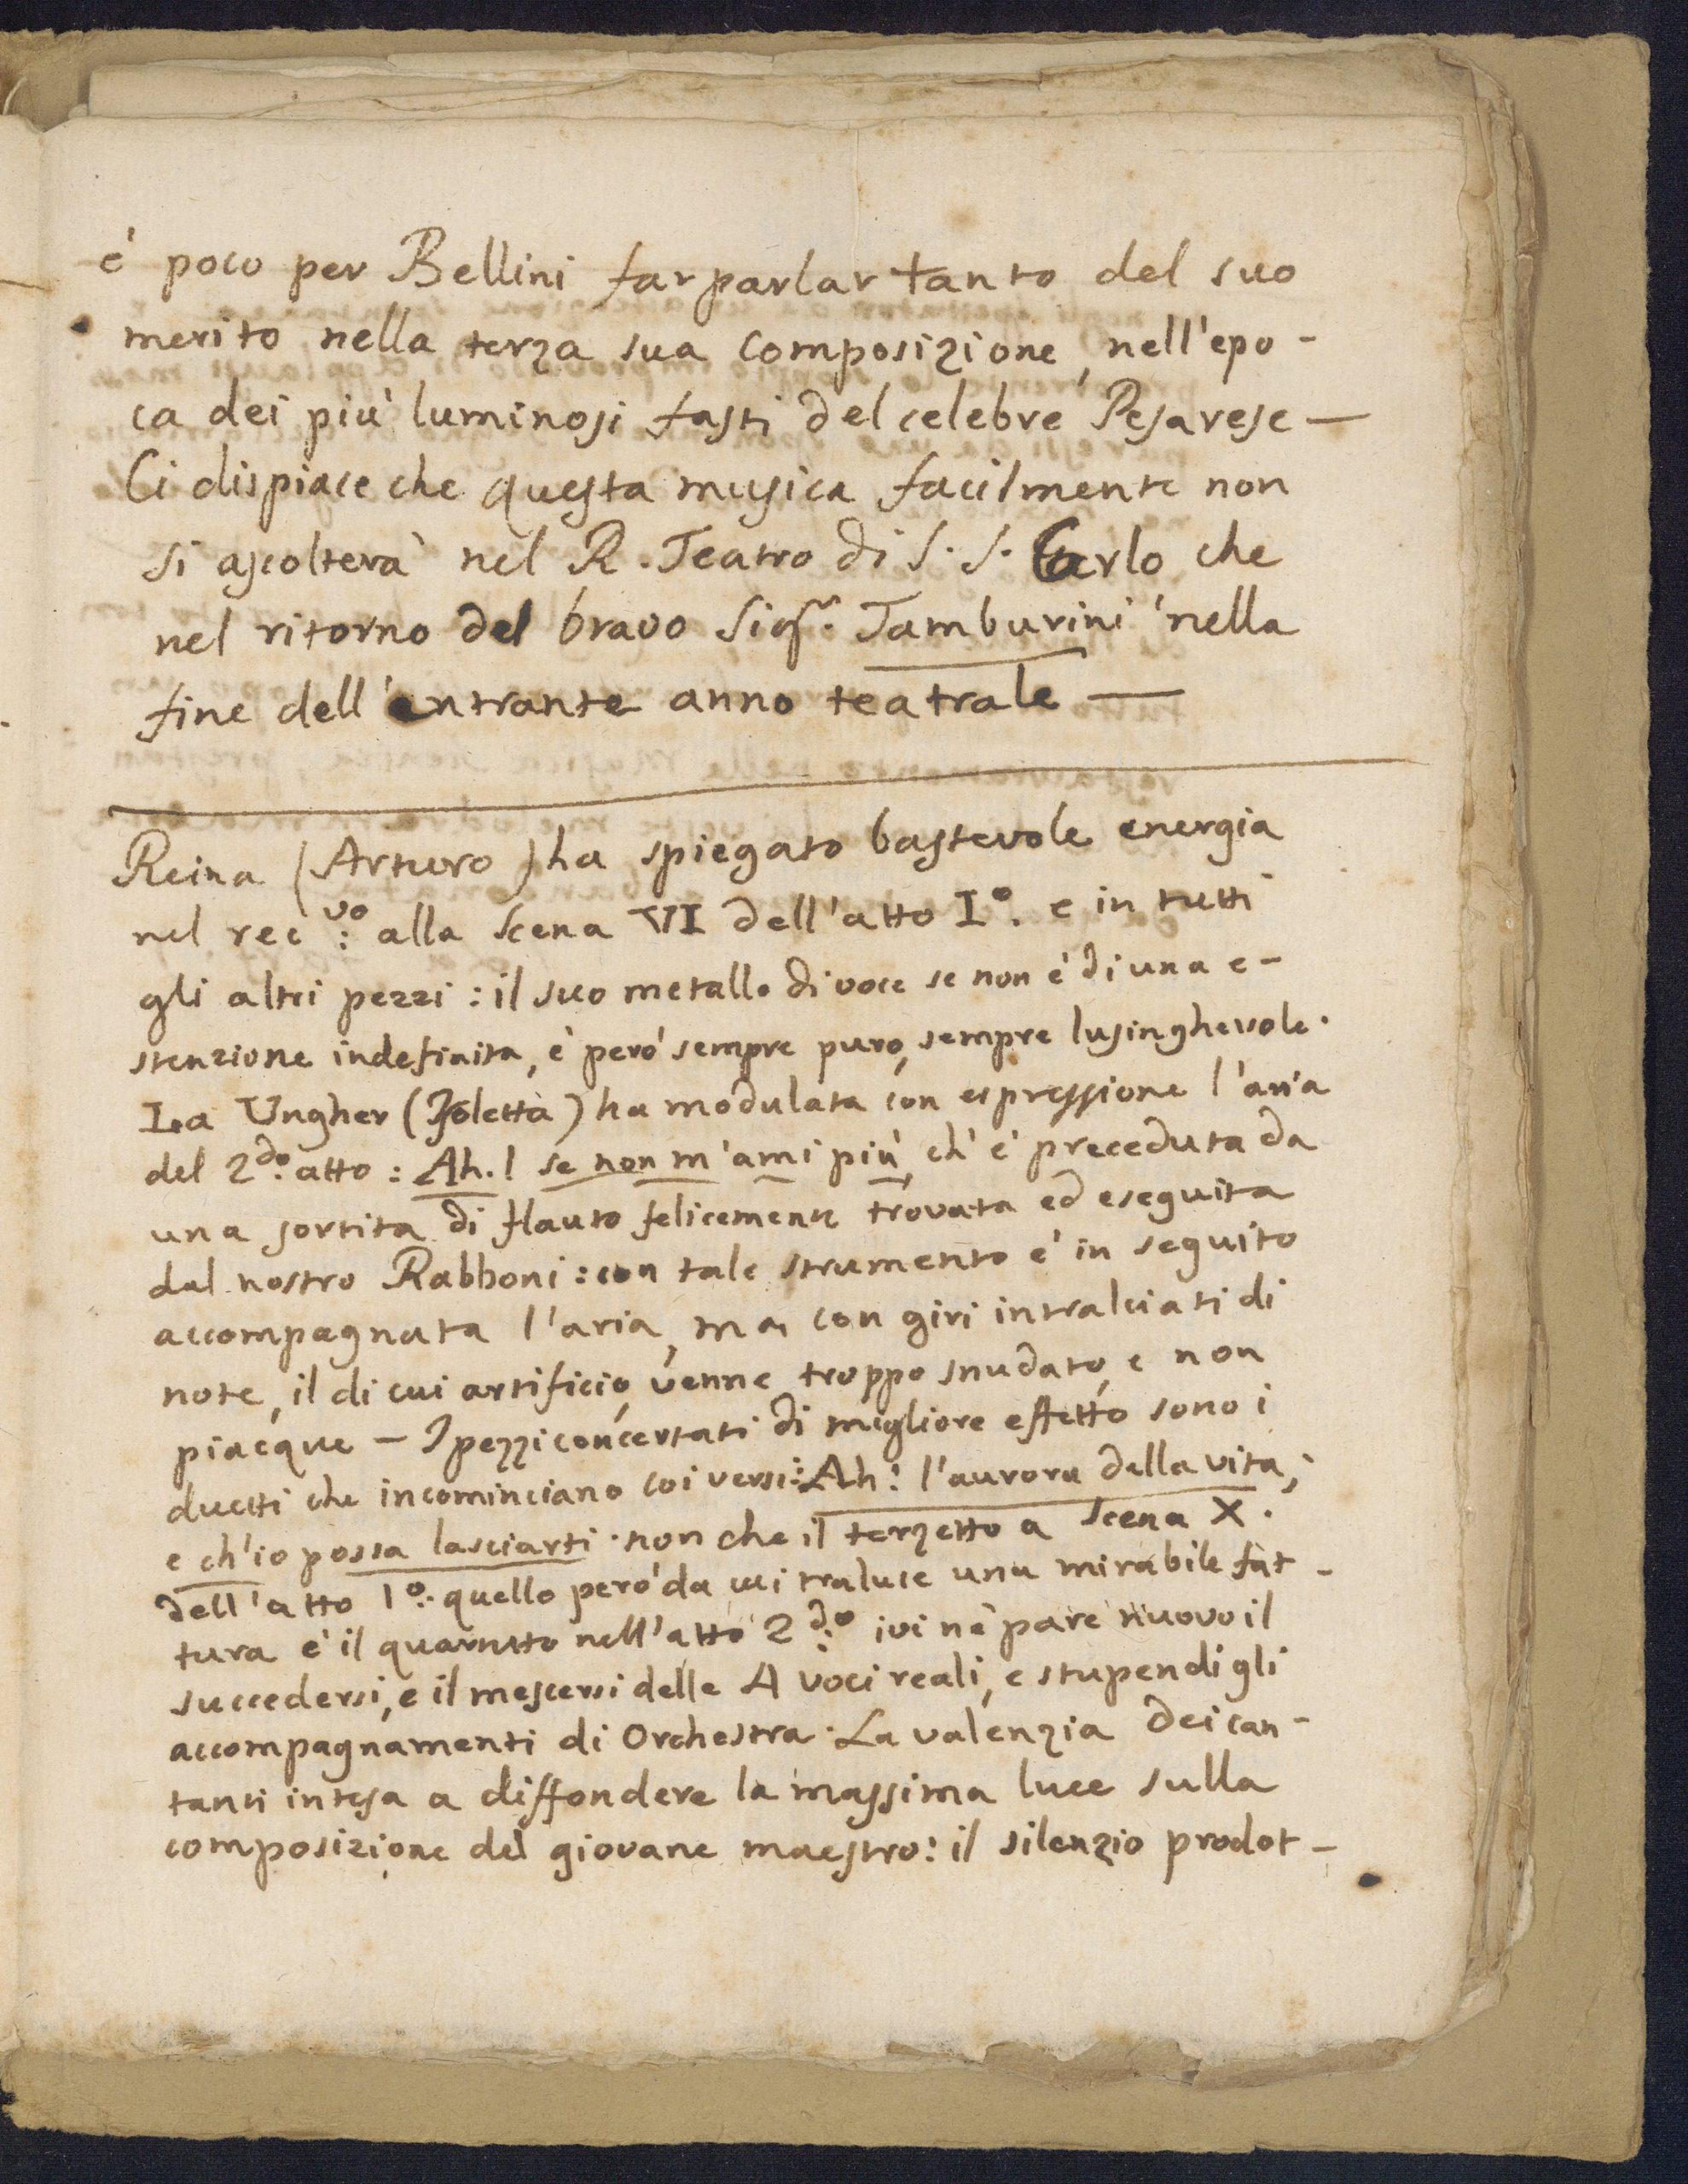 è poco per Bellini far parlar tanto del suo
merito nella terza sua composizione, nell'epo-
ca dei più luminosi fasti del celebre Pesarese —
Ci dispiace che questa musica facilmente non
si ascolterà nel R. Teatro di S. S. Carlo che
nel ritorno del bravo Sigr. Tamburini nella
fine dell'entrante anno teatrale —
Reina (Arturo) ha spiegato bastevole energia
nel rec:vo alla Scena VI dell'atto Io. e in tutti
gli altri pezzi: il suo metallo di voce se non è di una e-
stenzione indefinita, è però sempre puro, sempre lusinghevole.
La Ungher (Isoletta) ha modulata con espressione l'aria
del 2do. atto: Ah.! se non m'ami più, ch'è preceduta da
una sortita di flauto felicemente trovata ed eseguita
dal nostro Rabboni: con tale strumento è in seguito
accompagnata l'aria, ma con giri intralciati di
note, il di cui artificio, venne troppo snudato, e non
piacque — I pezzi concertati di migliore effetto sono i
duetti che incominciano coi versi: Ah! l'aurora della vita;
e ch'io possa lasciarti. non che il terzetto a Scena X.
dell'atto 1o. quello però da cui traluce una mirabile fat-
tura è il quartetto nell'atto 2do: ivi ne pare nuovo il
succedersi, e il mescersi delle 4 voci reali, e stupendi gli
accompagnamenti di Orchestra. La valenzia dei can-
tanti intesa a diffondere la massima luce sulla
composizione del giovane maestro: il silenzio prodot-